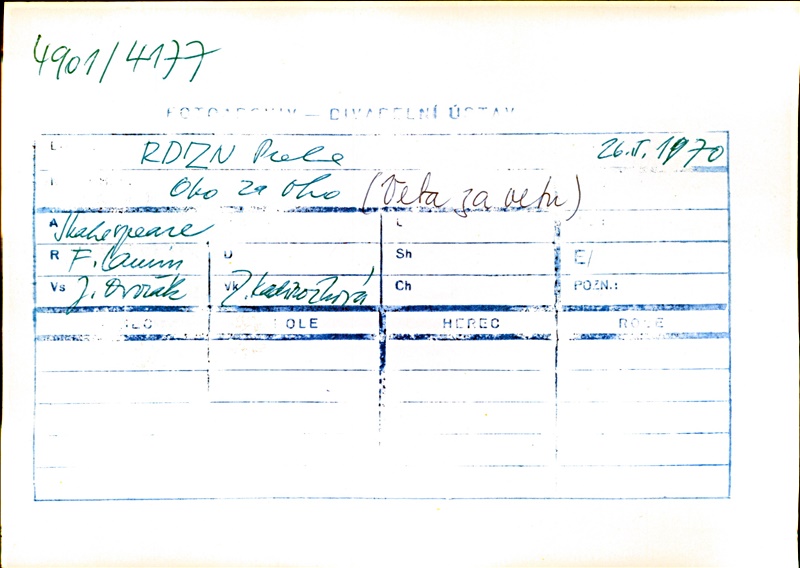 4901/4177
FOTOARCHIV – DIVADELNÍ ÚSTAV
RDZN Praha 26. V. 1970
Oko za oko (Veta za vetu)
A Shakespeare
R F. Laurin U Sh E/
Vs J. Dvořák Vk Ch POZN.:
ROLE HEREC ROLE